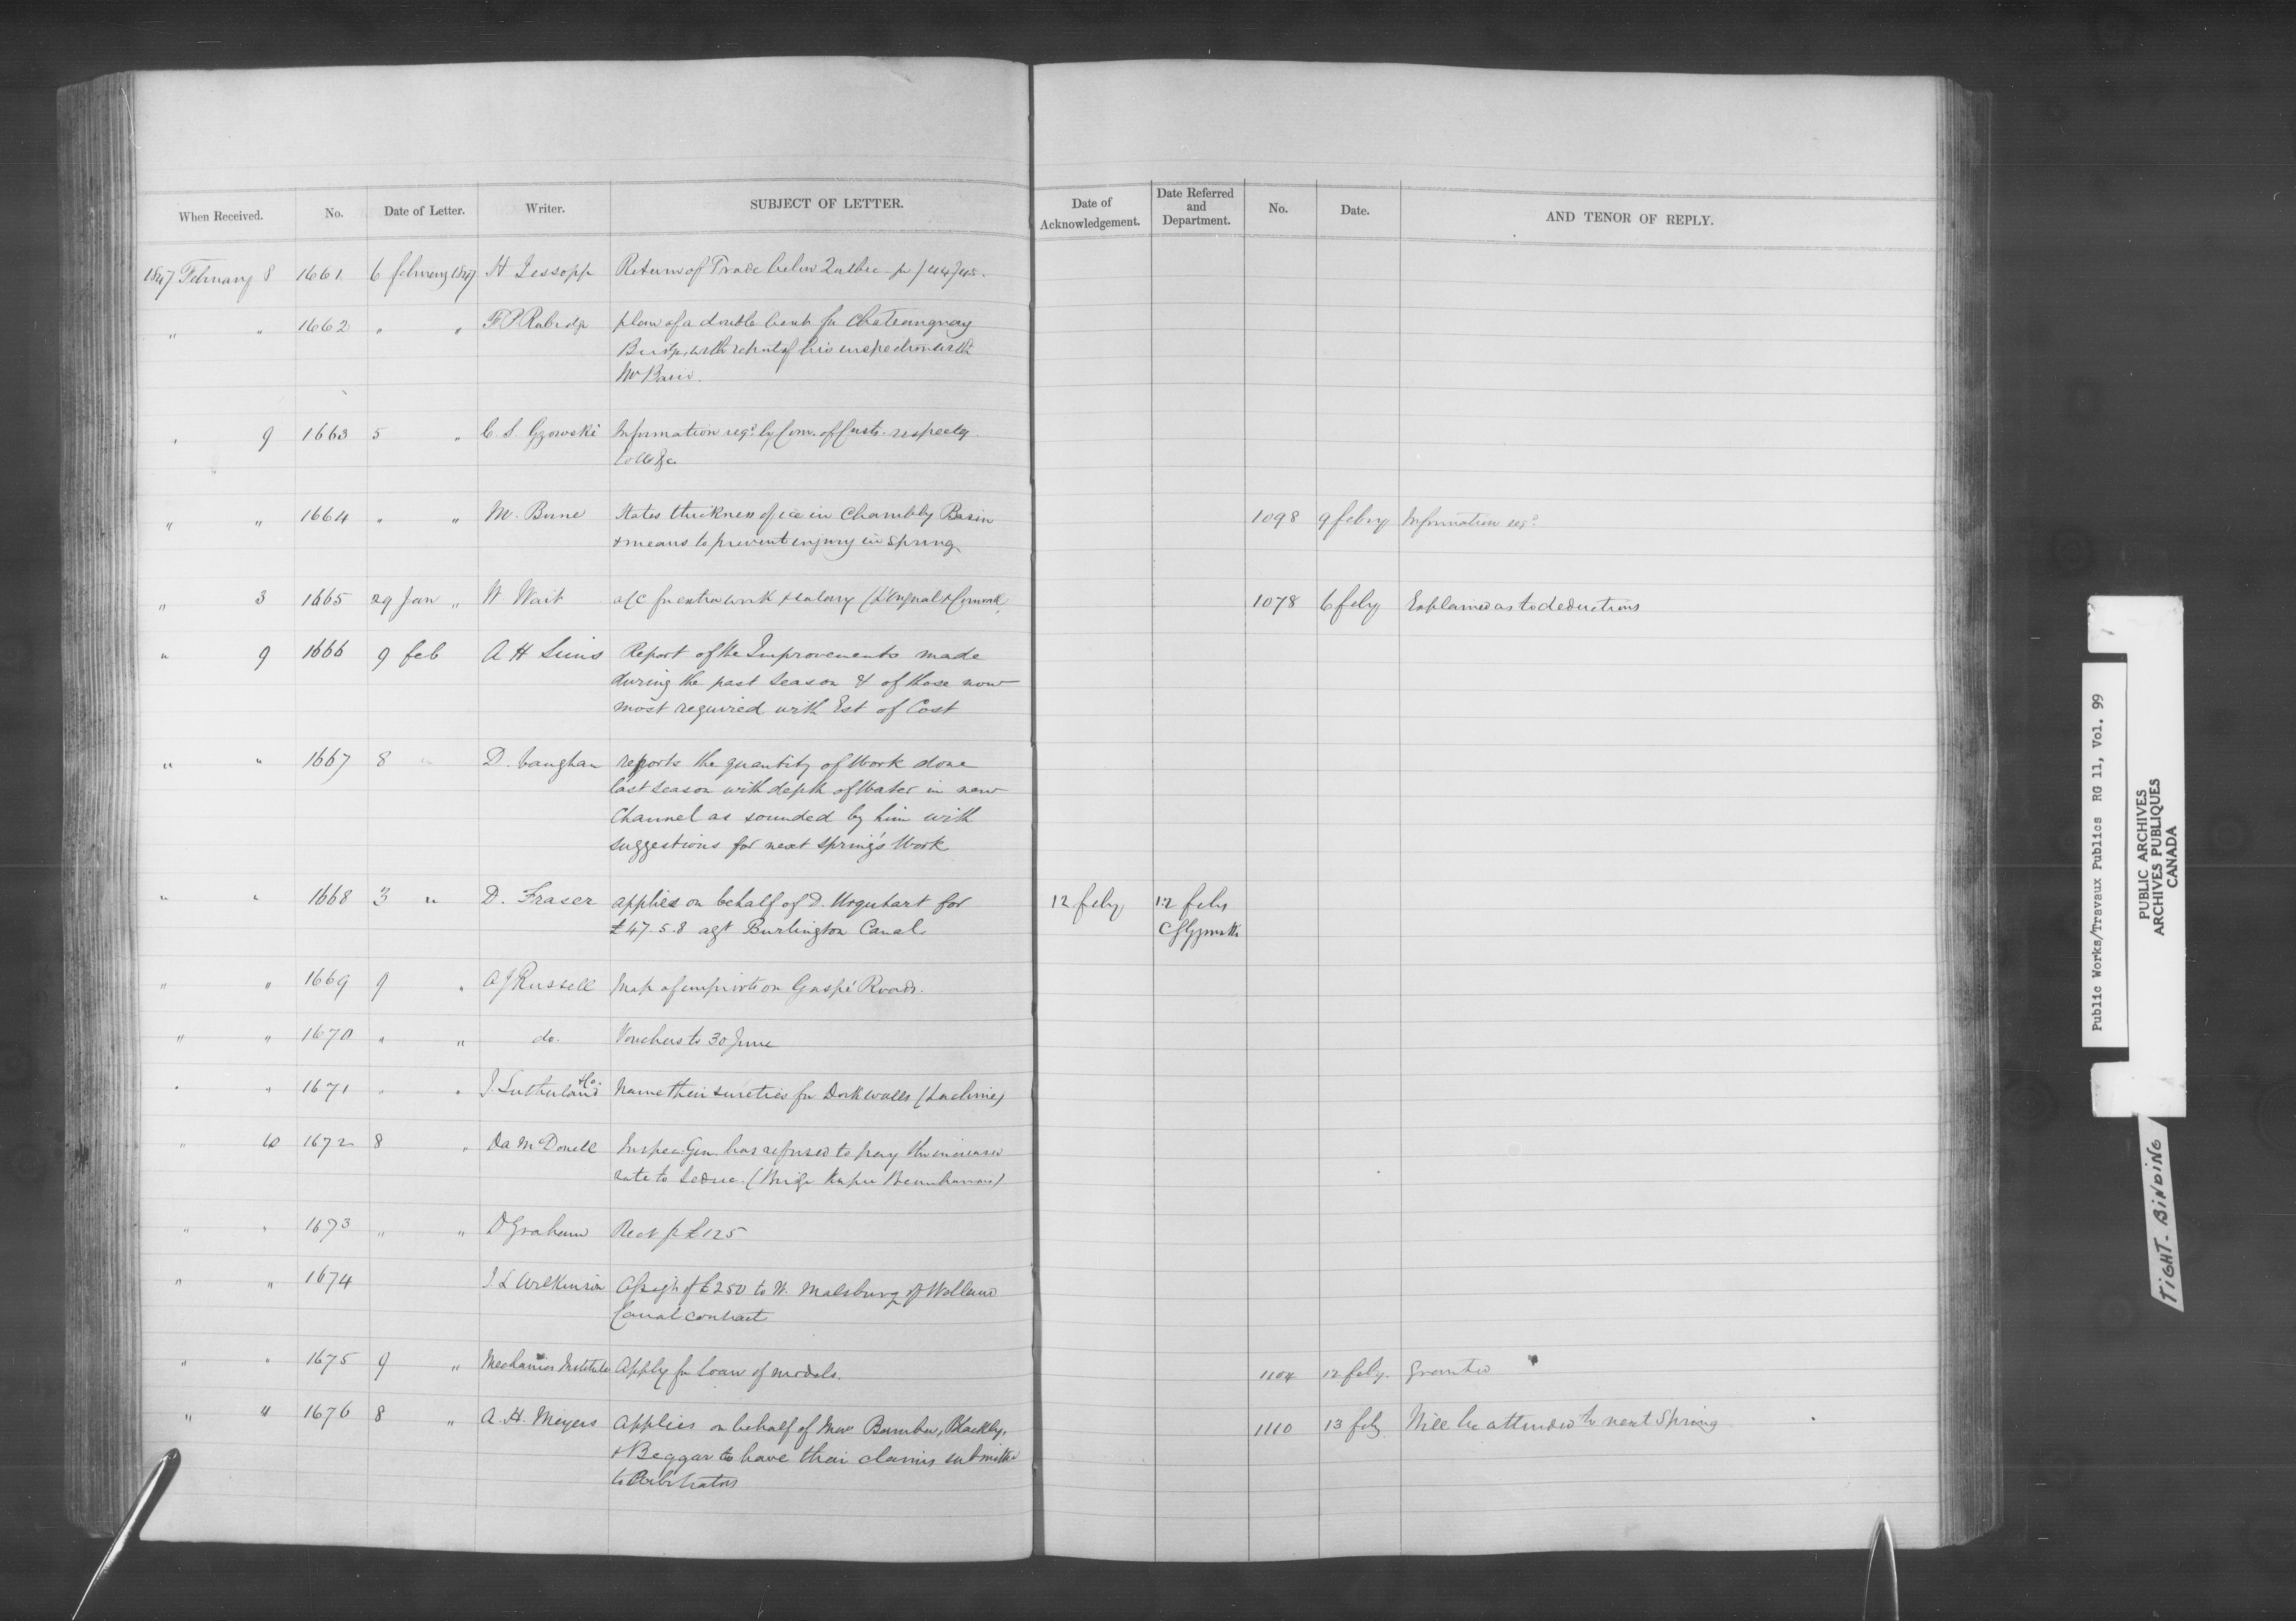 When Received. No. Date of Letter. Writer. SUBJECT OF LETTER. Date of Acknowledgement. Date Referred and Department. No. Date. AND TENOR OF REPLY.
1847 February 8 1661 6 february 1847 H Jessopp Return of Trade below Quebec
" " 1662 " " F P Rubidge plan of a double for Chateauguay
Bridge with report of his inspection with
Mr
" 9 1663 5 " C. S. Gzowski Information reqd. by Com. of Custs. respectg
" " 1664 " " M. States thickness of ice in Chambly Basin 1098 9 febry Information reqd.
& means to prevent injury in Spring
" 3 1665 29 Jan " W Wait a/c for extra work & salary (L'Orignal & Cornwall 1078 6 feby Explained as to deductions
" 9 1666 9 feb A H Sims Report of the Improvements made
during the past Season & of those now
most required with Est of Cost
" " 1667 8 " D. Vaughan reports the quantity of Work done
last season with depth of Water in new
Channel as sounded by him with
suggestions for next spring's Work
" " 1668 3 " D. Fraser applies on behalf of D. Urquhart for 12 feby 12 feby
£47.5.8 agt Burlington Canal. C S Gzowski
" " 1669 9 " A J Russell Map of improvts on Gaspé Roads.
" " 1670 " " do. Vouchers to 30 June
" " 1671 " " J. Sutherland & Co. Name their sureties for Dock walls (Lachine)
" 10 1672 8 " Da McDonell Inspec. Gen. has refused to pay the increased
rate to Leduc. (Bridge Keeper Beauharnois)
" " 1673 " " D Graham Rect for £125
" " 1674 J. L Wilkinson Assigt of £250 to W. Malsburg of Welland
Canal contract
" " 1675 9 " Mechanics Institute Apply for loan of models. 1104 12 feby. Granted
" " 1676 8 " A. H. Meyers Applies on behalf of Blackley, 1110 13 feby Will be attended to next Spring
& Beggar to have their claims submitted
to Arbitrators
Public Works/Travaux Publics RG 11, Vol. 99
PUBLIC ARCHIVES
ARCHIVES PUBLIQUES
CANADA
TIGHT-BINDING